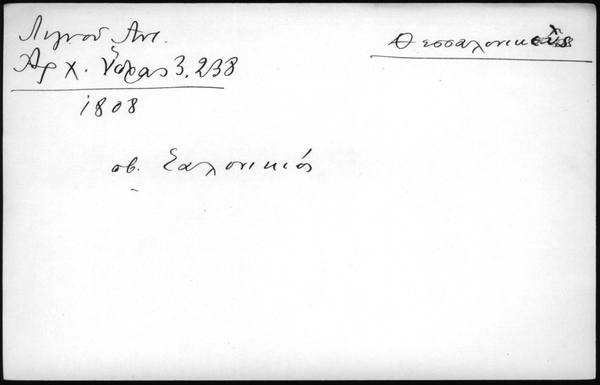 Λιγνού Αντ.
Αρχ. Ύδρας 3.238
1808
Θεσσαλονικ
σβ. Σαλονικιός